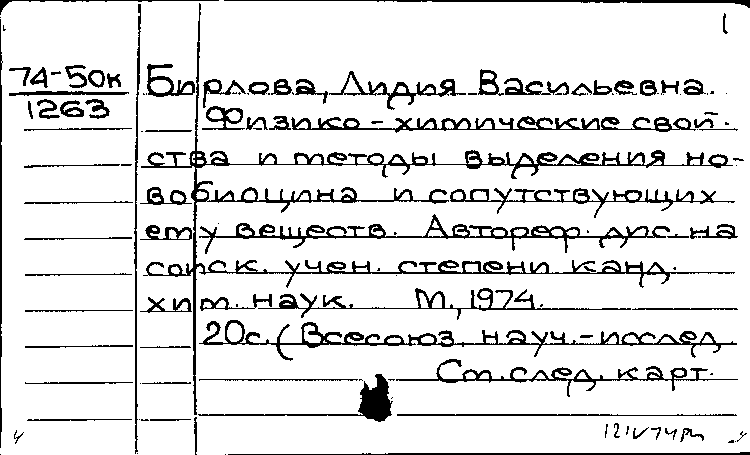 1
74-50к
1263
Бирлова, Лидия Васильевна.
Физико-химические свой-
ства и методы выделения но-
вобиоцина и сопутствующих
ему веществ. Автореф. дис. на
соиск. учен. степени канд.
хим. наук. М., 1974.
20с. (Всесоюз. науч.-исслед.
См. след. карт.